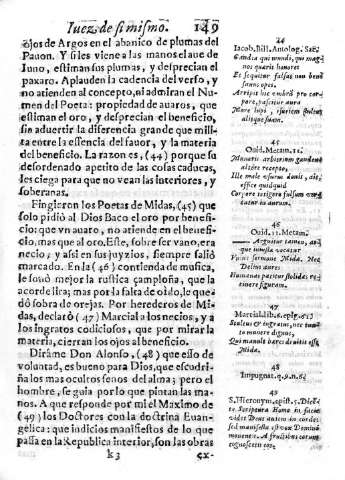 Iuez de si mismo. 149
ojos de Argos en el abanico de plumas del
Pauon. Y si les viene a las manos el aue de
Iuno, estiman sus plumas, y desprecian el
paxaro. Aplauden la cadencia del verso, y
no atienden al concepto, ni admiran el Nu-
men del Poeta: propiedad de auaros, que
estiman el oro, y desprecian el beneficio,
sin aduertir la diferencia grande que mili-
ta entre la essencia del fauor, y la materia
del beneficio. La razon es, (44) porque su
desordenado apetito de las cosas caducas,
les ciega para que no vean las interiores, y
soberanas.
Fingieron los Poetas de Midas, (45) que
solo pidiò al Dios Baco el oro por benefi-
cio: que vn auaro, no atiende en el benefi-
cio, mas que al oro. Este, sobre ser vano, era
necio; y assi en sus juyzios, siempre salió
marcado. En la (46) contienda de musica,
le sonó mejor la rustica çampoña, que la
acorde lira; mas por la falta de oìdo, le que-
dó sobra de orejas. Por herederos de Mi-
das, declarò (47) Marcial a los necios, y a
los ingratos codiciosos, que por mirar la
materia, cierran los ojos al beneficio.
Dirame Don Alonso, (48) que esso de
voluntad, es bueno para Dios, que escudri-
ña los mas ocultos senos del alma; pero el
hombre, se guia por lo que pintan las ma-
nos. A que responde por mi el Maximo de
(49) los Doctores con la doctrina Euan-
gelica: que indicios manifiestos de lo que
passa en la Republica interior, son las obras
k3 ex-
44
Iacob. Bill. Antolog.
Gaudia qui mundi, qui mag-
nos quæris honores
Et sequitur falsas non bene
sanus opes.
Arripit hic umbra pro cor-
pore, pascitur aura
45
Ouid. Metam. 11.
Muneris arbitrium gaudens
altore recepto,
Ille male usurus donis, ait,
effice quidquid
Corpore tetigero fuluum
aurum.
46
Ouid. 11. Metam.
Arguitur tamen, at-
que iniusta vocatur
Vnius sermone Midæ. Nec
Delius aures
Humanas patitur stolidas re-
tinere figuram.
47
Martial. lib. 6. epig.
48
Impugnat.
49
S. Hieronym. epist.